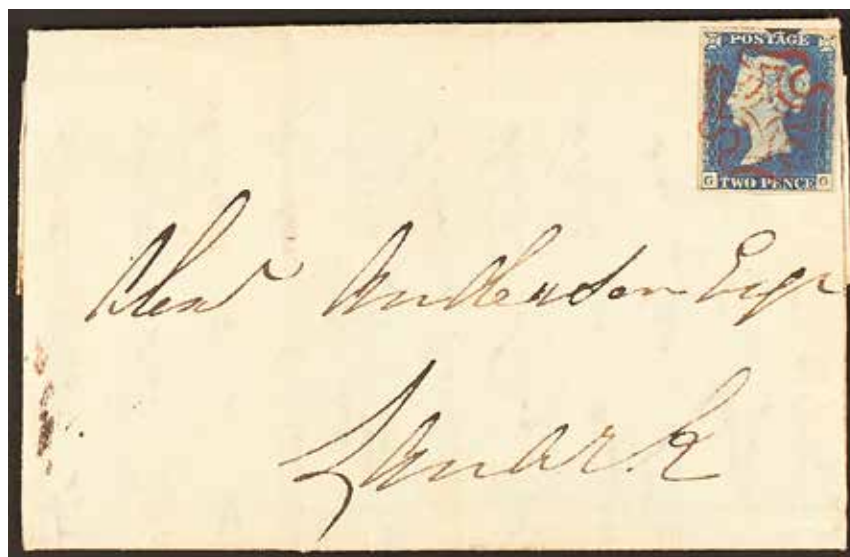 POSTAGE
G TWO PENCE G
Alexr Anderson Esqr
Lanark